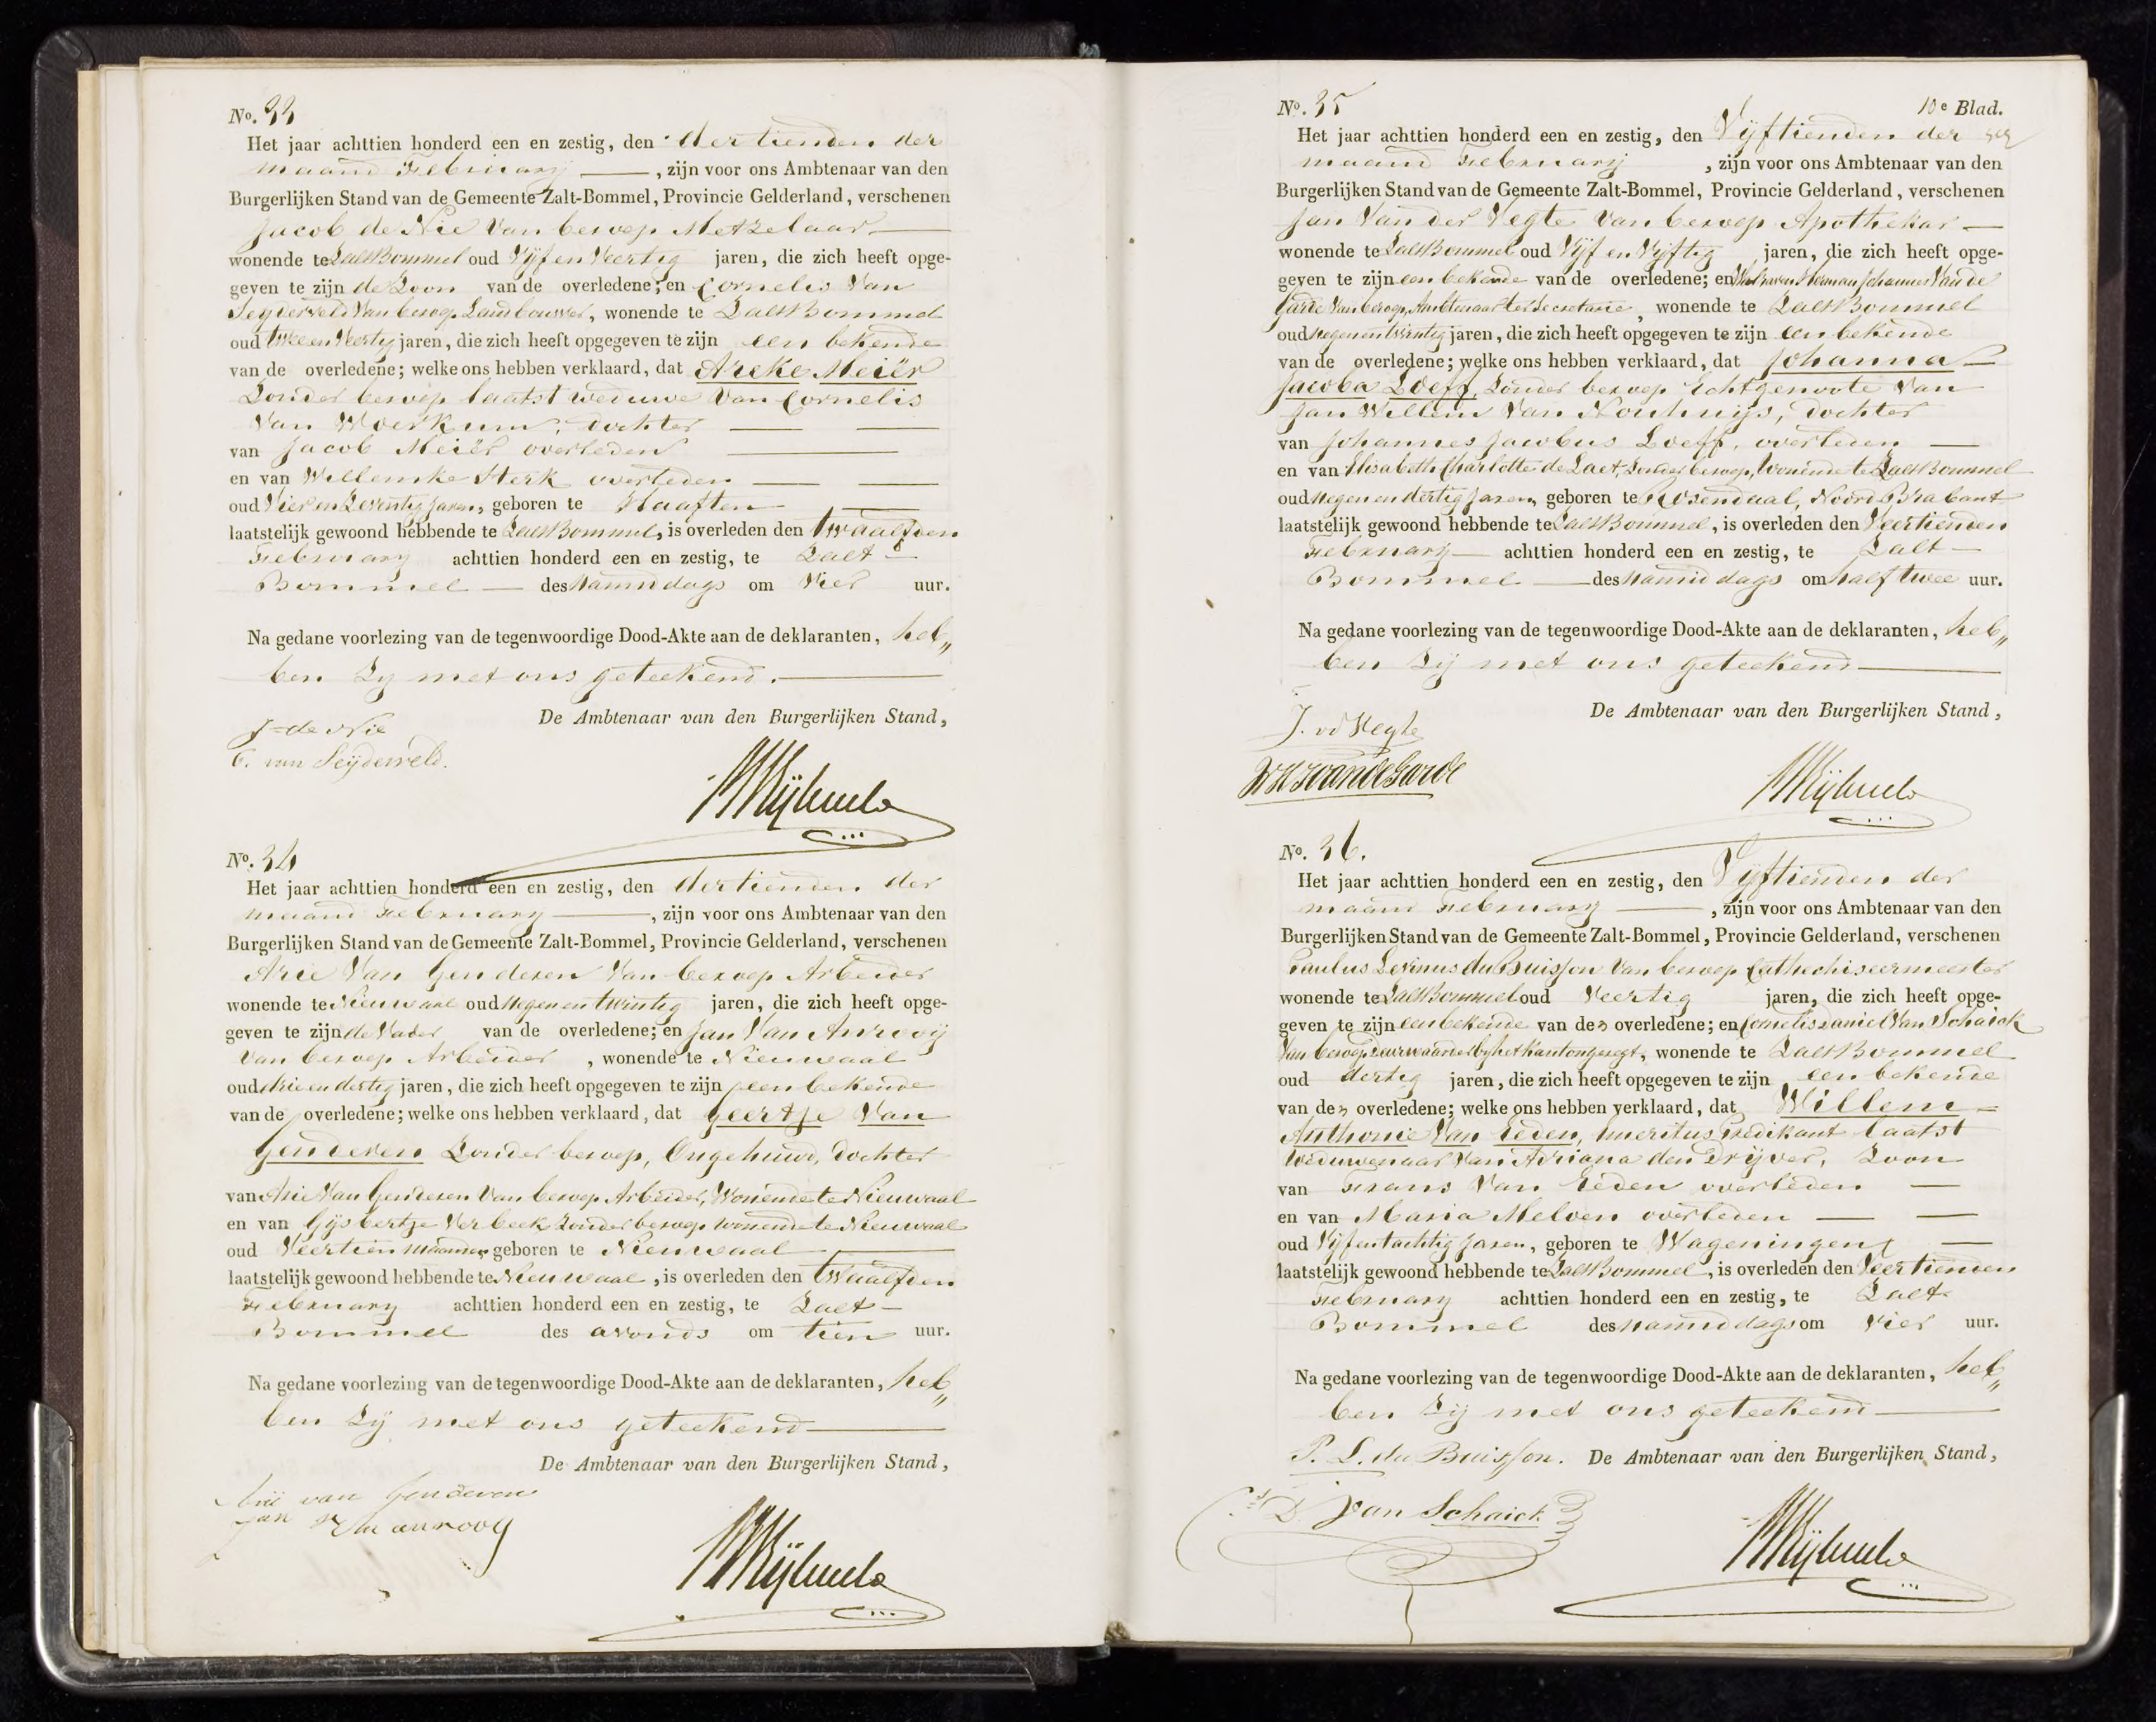 No. 33
Het jaar achttien honderd een en zestig, den dertienden der
maand February, zijn voor ons Ambtenaar van den
Burgerlijken Stand van de Gemeente Zalt-Bommel, Provincie Gelderland, verschenen
Jacob de Nie van beroep Metzelaar
wonende te ZaltBommel oud Vijf en Veertig jaren, die zich heeft opge-
geven te zijn de Zoon van de overledene; en Cornelis Van
Seyderveld van beroep Landbouwer, wonende te ZaltBommel
oud twee en Veertig jaren, die zich heeft opgegeven te zijn een bekende
van de overledene; welke ons hebben verklaard, dat Areke Meiër
Zonder beroep laatst weduwe Van Cornelis
Van Woerkum, dochter
van Jacob Meiër overleden
en van Willemke Sterk overleden
oud Vier en Zeventig Jaren, geboren te Haaften
laatstelijk gewoond hebbende te ZaltBommel, is overleden den twaalfden
February achttien honderd een en zestig, te Zalt-
Bommel des Namiddags om Vier uur.
Na gedane voorlezing van de tegenwoordige Dood-Akte aan de deklaranten, heb„
ben Zy met ons geteekend.
De Ambtenaar van den Burgerlijken Stand,
J= de Nie
C. van Seijderveld.
No. 34
Het jaar achttien honderd een en zestig, den dertienden der
maand February, zijn voor ons Ambtenaar van den
Burgerlijken Stand van de Gemeente Zalt-Bommel, Provincie Gelderland, verschenen
Arie Van Genderen Van beroep Arbeider
wonende te Nieuwaal oud Negen en twintig jaren, die zich heeft opge-
geven te zijn de Vader van de overledene; en Jan Van Anrooij
Van beroep Arbeider, wonende te Nieuwaal
oud drie en dertig jaren, die zich heeft opgegeven te zijn een bekende
van de overledene; welke ons hebben verklaard, dat Geertje Van
Genderen Zonder beroep, Ongehuwd, dochter
van Arie Van Genderen Van beroep Arbeider, Wonende te Nieuwaal
en van Gijsbertje Verbeek Zonder beroep wonende te Nieuwaal
oud Veertien maanden geboren te Nieuwaal
laatstelijk gewoond hebbende te Nieuwaal, is overleden den twaalfden
February achttien honderd een en zestig, te Zalt-
Bommel des avonds om tien uur.
Na gedane voorlezing van de tegenwoordige Dood-Akte aan de deklaranten, heb„
ben Zij met ons geteekend
De Ambtenaar van den Burgerlijken Stand,
Arie van Genderen
Jan van anrooy
No. 35
10e Blad.
Het jaar achttien honderd een en zestig, den Vijftienden der
maand February, zijn voor ons Ambtenaar van den
Burgerlijken Stand van de Gemeente Zalt-Bommel, Provincie Gelderland, verschenen
Jan Van der Vegte Van beroep Apothekar
wonende te ZaltBommel oud Vijf en Vijftig jaren, die zich heeft opge-
geven te zijn een bekende van de overledene; en Walraven Herman Johannes Van de
Garde Van beroep, Ambtenaar ter Secretarie, wonende te ZaltBommel
oud Negen en twintig jaren, die zich heeft opgegeven te zijn een bekende
van de overledene; welke ons hebben verklaard, dat Johanna
Jacoba Loeff, Zonder beroep Echtgenoote Van
Jan Willem Van Nouhuijs, dochter
van Johannes Jacobus Loeff, overleden
en van Elisabeth Charlotte de Laet, Zonder beroep, Wonende te ZaltBommel
oud Negen en dertig Jaren, geboren te Rosendaal, Noord Brabant
laatstelijk gewoond hebbende te ZaltBommel, is overleden den Veertienden
February achttien honderd een en zestig, te Zalt-
Bommel des Namiddags om half twee uur.
Na gedane voorlezing van de tegenwoordige Dood-Akte aan de deklaranten, heb„
ben Zij met ons geteekend
De Ambtenaar van den Burgerlijken Stand,
J. vd Vegte
WHJ van de Garde
No. 36.
Het jaar achttien honderd een en zestig, den Vijftienden der
maand February, zijn voor ons Ambtenaar van den
Burgerlijken Stand van de Gemeente Zalt-Bommel, Provincie Gelderland, verschenen
Paulus Levinus du Buisson Van beroep Cathechiseermeester
wonende te ZaltBommel oud Veertig jaren, die zich heeft opge-
geven te zijn een bekende van den overledene; en Cornelis Daniel Van Schaick
Van beroep deurwaarder by het Kantongeregt, wonende te ZaltBommel
oud dertig jaren, die zich heeft opgegeven te zijn een bekende
van den overledene; welke ons hebben verklaard, dat Willem
Anthonie Van Eeden, Emeritus Predikant laatst
Weduwenaar Van Adriana den Drijver, Zoon
van Frans Van Eeden overleden
en van Maria Melven overleden
oud Vijf en tachtig Jaren, geboren te Wageningen
laatstelijk gewoond hebbende te ZaltBommel, is overleden den Veertienden
February achttien honderd een en zestig, te Zalt-
Bommel des Namiddags om Vier uur.
Na gedane voorlezing van de tegenwoordige Dood-Akte aan de deklaranten, heb„
ben Zij met ons geteekend
P. L. du Buisson. De Ambtenaar van den Burgerlijken Stand,
Cs D van Schaick